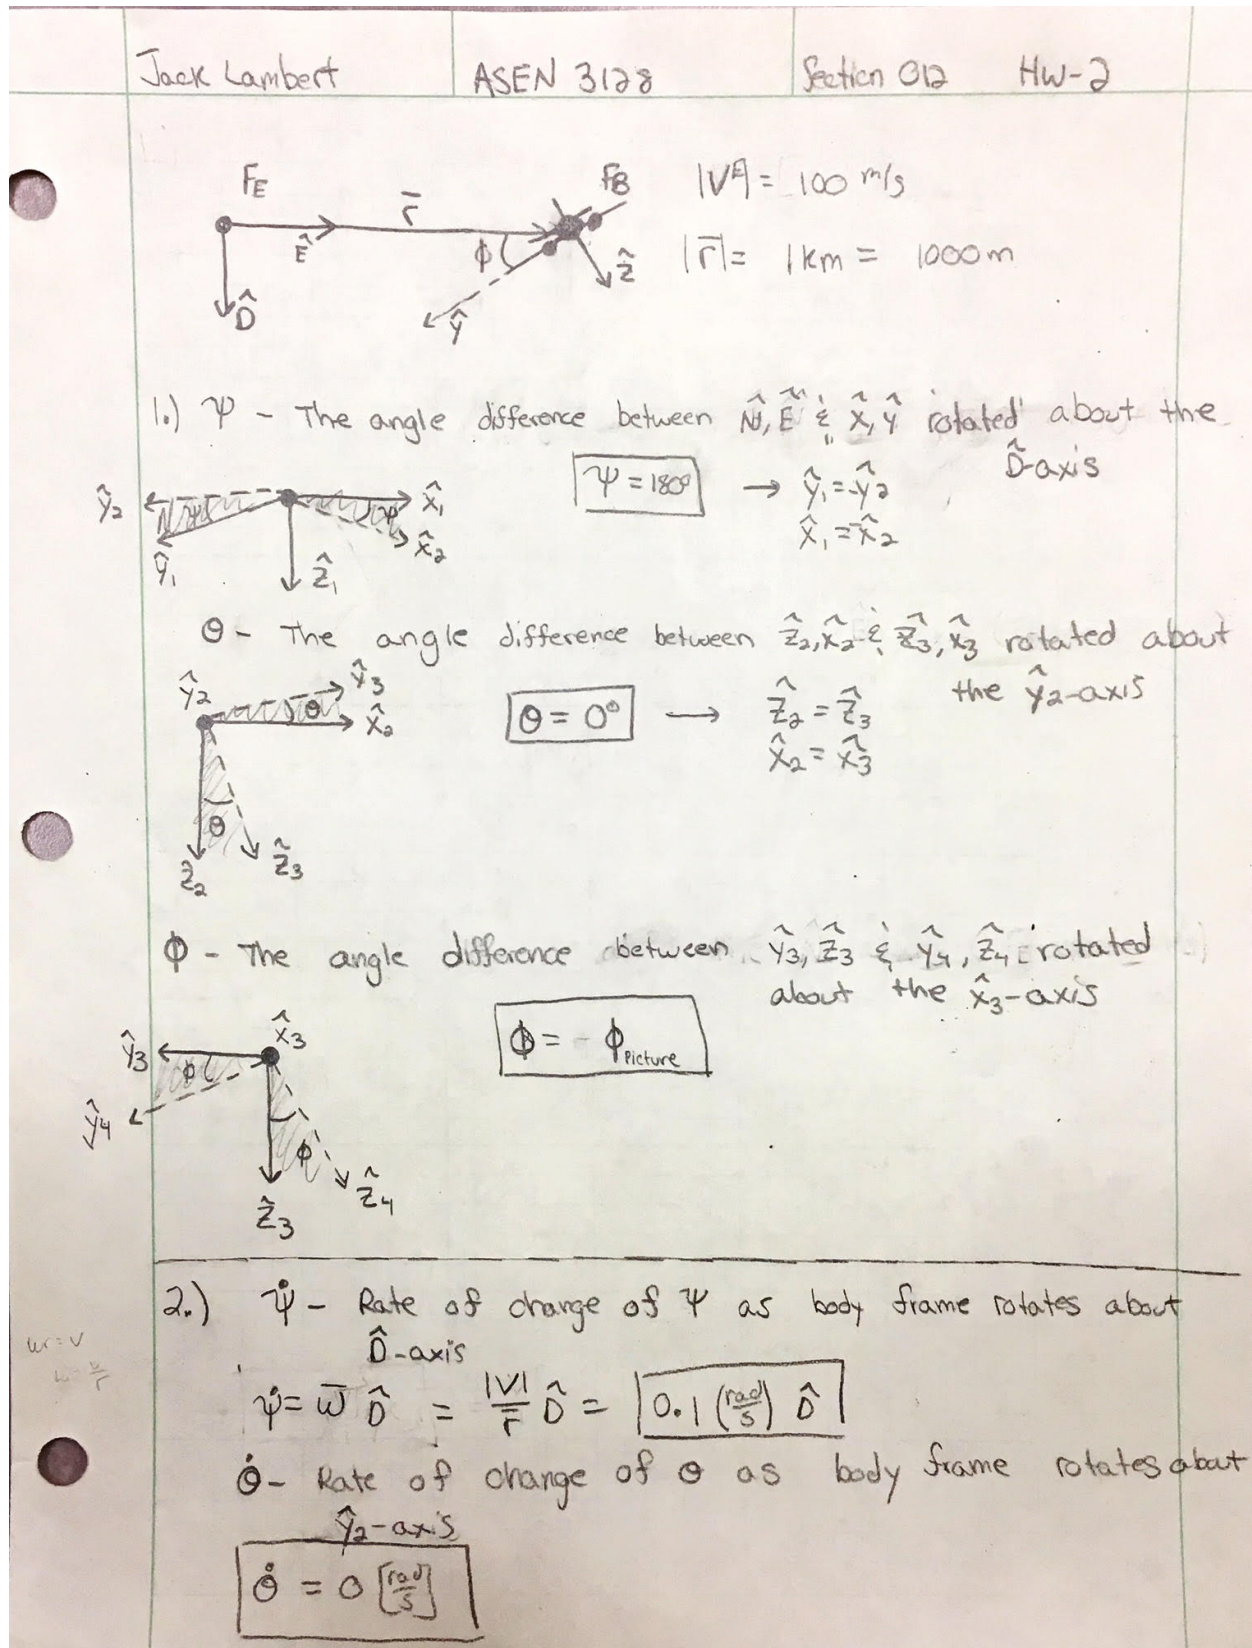 Jack Lambert ASEN 3128 Section 012 HW-2
F_E r̄ F_B |V^E| = 100 m/s
Ê ϕ ẑ |r̄| = 1 km = 1000 m
D̂ ŷ
1.) Ψ - The angle difference between N̂, Ê & x̂, ŷ rotated about the
D̂-axis
Ψ = 180° → ŷ₁ = -ŷ₂
x̂₁ = -x̂₂
ŷ₂ Ψ Ψ x̂₁
ŷ₁ ẑ₁ x̂₂
θ - The angle difference between ẑ₂, x̂₂ & ẑ₃, x̂₃ rotated about
the ŷ₂-axis
ŷ₂ θ x̂₃ θ = 0° → ẑ₂ = ẑ₃
x̂₂ x̂₂ = x̂₃
θ
ẑ₂ ẑ₃
ϕ - The angle difference between ŷ₃, ẑ₃ & ŷ₄, ẑ₄ rotated
about the x̂₃-axis
ŷ₃ x̂₃ ϕ = - ϕ_Picture
ϕ
ŷ₄ ϕ
ẑ₄
ẑ₃
2.) Ψ̇ - Rate of change of Ψ as body frame rotates about
D̂-axis
ωr = v
ω = v/r
Ψ̇ = ω̄ D̂ = |V|/r̄ D̂ = 0.1 (rad/s) D̂
θ̇ - Rate of change of θ as body frame rotates about
ŷ₂-axis
θ̇ = 0 [rad/s]